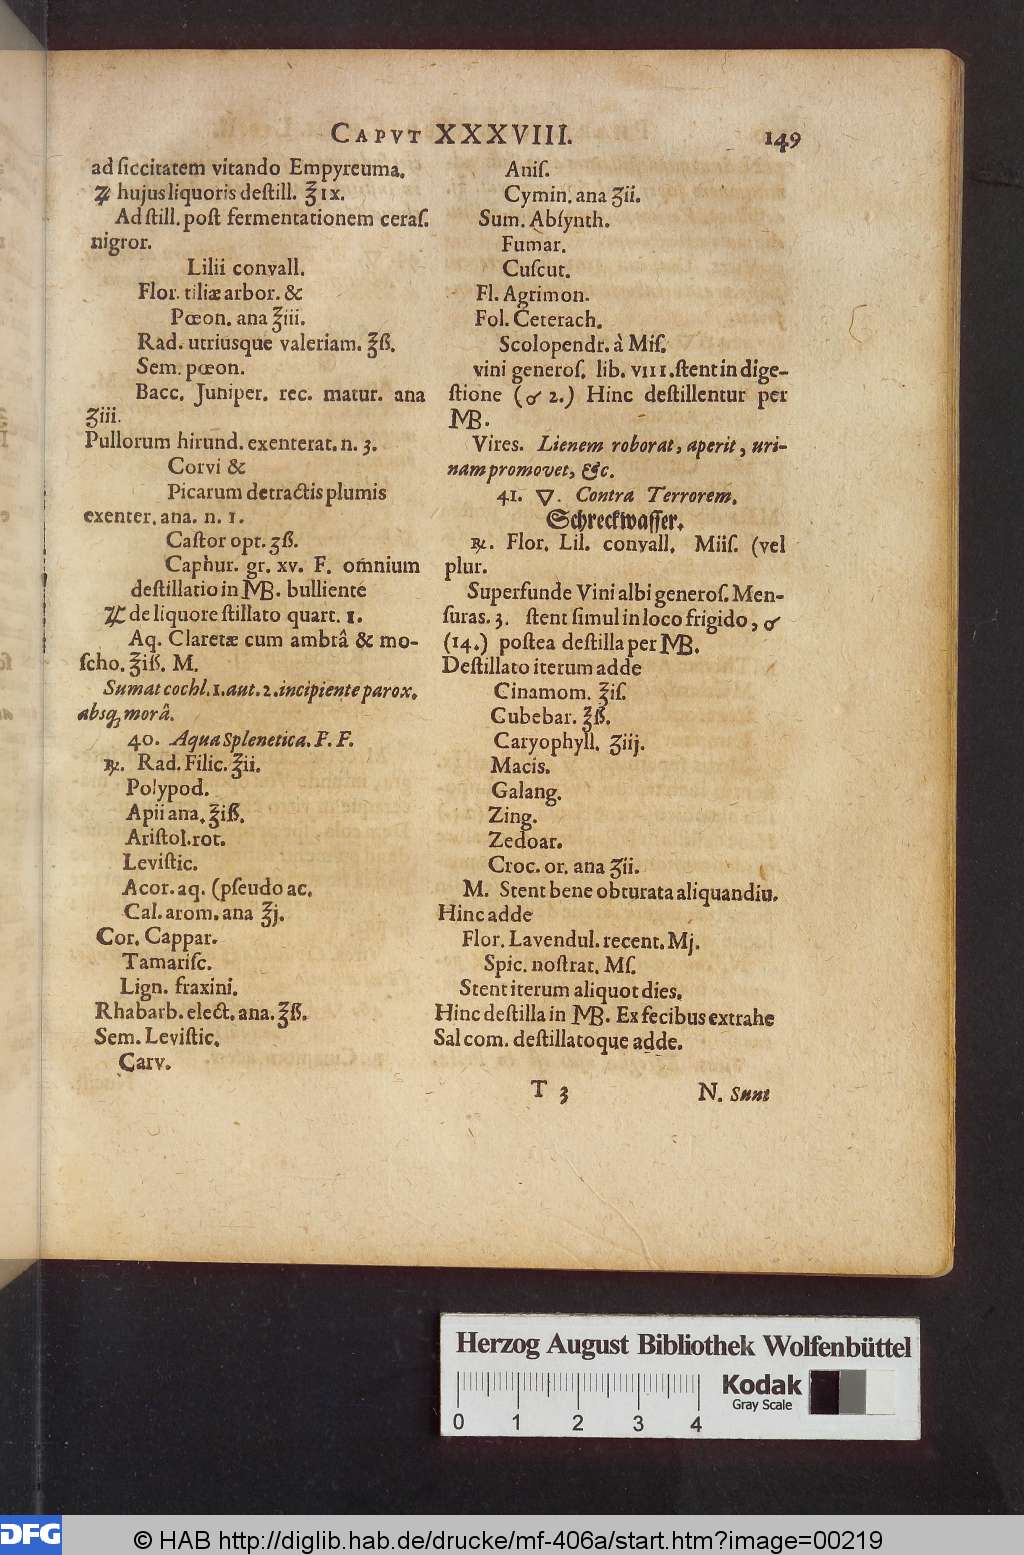 CAPVT XXXVIII. 149
ad ſiccitatem vitando Empyreuma.
♃ hujus liquoris deſtill. ℥ IX.
Ad ſtill. poſt fermentationem ceraſ.
nigror.
Lilii convall.
Flor. tiliæ arbor. &
Pœon. ana ℥iii.
Rad. utriusque valeriam. ℥ß.
Sem. pœon.
Bacc. Juniper. rec. matur. ana
ʒiii.
Pullorum hirund. exenterat. n. 3.
Corvi &
Picarum detractis plumis
exenter. ana. n. 1.
Caſtor opt. ʒß.
Caphur. gr. xv. F. omnium
deſtillatio in MB. bulliente
♃ de liquore ſtillato quart. 1.
Aq. Claretæ cum ambrâ & mo-
ſcho. ℥iß. M.
Sumat cochl. 1. aut. 2. incipiente parox.
absq; morâ.
40. Aqua Splenetica. F. F.
℞. Rad. Filic. ℥ii.
Polypod.
Apii ana. ℥iß.
Ariſtol. rot.
Leviſtic.
Acor. aq. (pſeudo ac.
Cal. arom. ana ℥j.
Cor. Cappar.
Tamariſc.
Lign. fraxini.
Rhabarb. elect. ana. ℥ß.
Sem. Leviſtic.
Carv.
Aniſ.
Cymin. ana ʒii.
Sum. Abſynth.
Fumar.
Cuſcut.
Fl. Agrimon.
Fol. Ceterach.
Scolopendr. à Miſ.
vini generoſ. lib. VIII. ſtent in dige-
ſtione (♂ 2.) Hinc deſtillentur per
MB.
Vires. Lienem roborat, aperit, uri-
nam promovet, &c.
41. ▽. Contra Terrorem.
Schreckwaſſer.
℞. Flor. Lil. convall. Miiſ. (vel
plur.
Superfunde Vini albi generoſ. Men-
ſuras. 3. ſtent ſimul in loco frigido, ♂
(14.) poſtea deſtilla per MB.
Deſtillato iterum adde
Cinamom. ℥iſ.
Cubebar. ℥ß.
Caryophyll. ʒiij.
Macis.
Galang.
Zing.
Zedoar.
Croc. or. ana ʒii.
M. Stent bene obturata aliquandiu.
Hinc adde
Flor. Lavendul. recent. Mj.
Spic. noſtrat. Mſ.
Stent iterum aliquot dies.
Hinc deſtilla in MB. Ex fecibus extrahe
Sal com. deſtillatoque adde.
T 3 N. Sunt
Herzog August Bibliothek Wolfenbüttel
Kodak
Gray Scale
0 1 2 3 4
DFG
© HAB http://diglib.hab.de/drucke/mf-406a/start.htm?image=00219